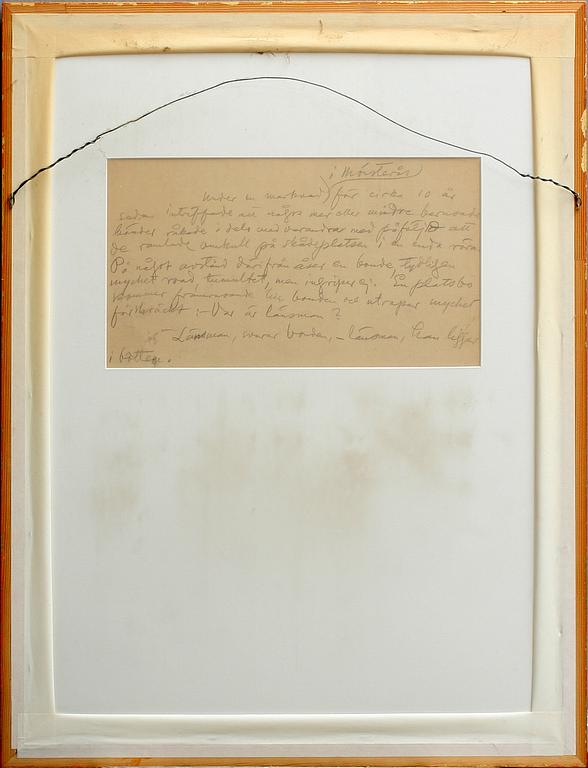 i Mönsterås
Under en marknad för cirka 10 år
sedan inträffade att några mer eller mindre
bönder råkade i delo med varandra med påföljd att
de ramlade omkull på skådeplatsen i en enda röra.
På något avstånd därifrån åser en bonde, tydligen
mycket road tumultet, men ingriper ej. En platsbo
kommer framrusande till bonden och utropar mycket
förskräckt :- Var är länsman?
Länsman, svarar bonden, - länsman, han ligger
i botten.